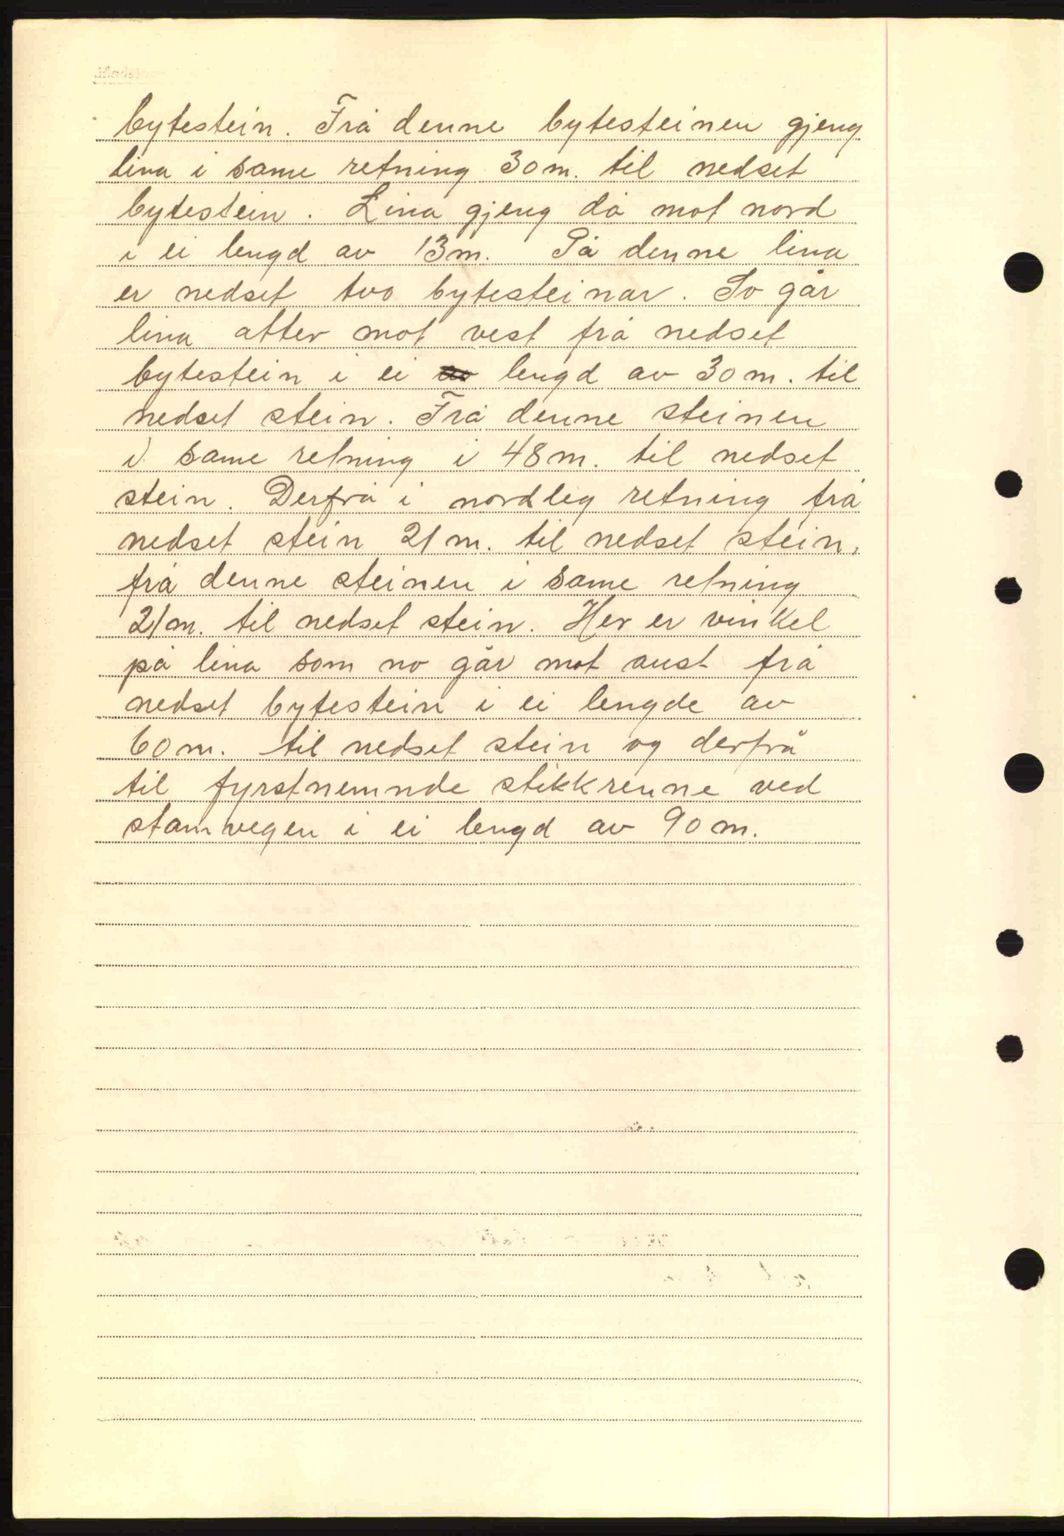 bytestein. Frå denne bytesteinen gjeng
lina i same retning 30 m. til nedset
bytestein. Lina gjeng då mot nord
i ei lengd av 13 m. På denne lina
er nedset tvo bytesteinar. So går
lina atter mot vest frå nedset
bytestein i ei av lengd av 30 m. til
nedset stein. Frå denne steinen
i same retning i 48 m. til nedset
stein. Derfrå i nordleg retning frå
nedset stein 21 m. til nedset stein,
frå denne steinen i same retning
21 m. til nedset stein. Her er vinkel
på lina som no går mot aust frå
nedset bytestein i ei lengde av
60 m. til nedset stein og derfrå
til fyrstnemnde stikkrenne ved
stamvegen i ei lengd av 90 m.